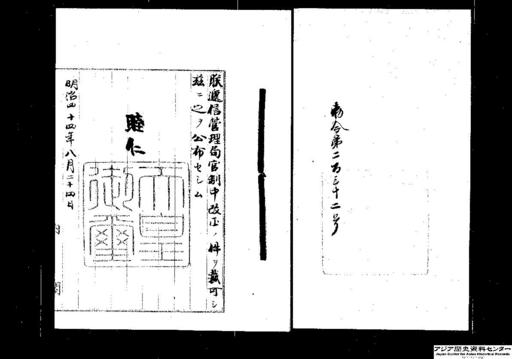 勅令第二百三十二号
朕逓信管理局官制中改正ノ件ヲ裁可シ
茲ニ之ヲ公布セシム
睦仁
天皇
御璽
明治四十四年八月二十四日
内
アジア歴史資料センター
Japan Center for Asian Historical Records